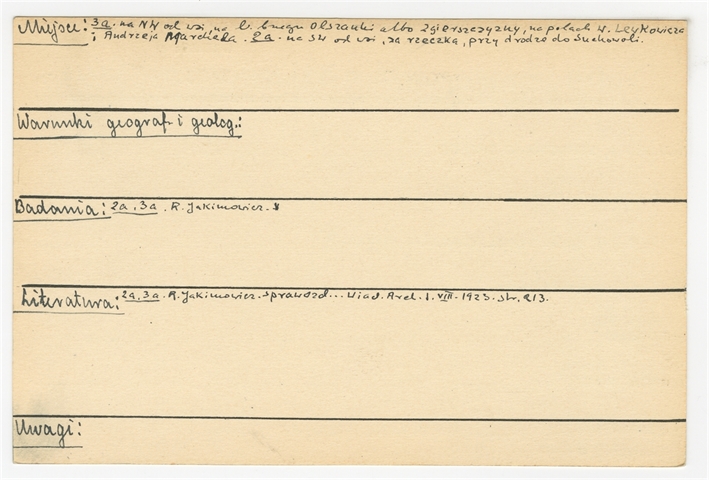 Miejsce: 3a. na NW od wsi, na l. brzegu Olszanki albo Zgierszczyzny, na polach W. Leykowicza
i Andrzeja Marchela. 2a. na SW od wsi, za rzeczką, przy drodze do Suchowoli.
Warunki geograf. i geolog.:
Badania: 2a. 3a. R. Jakimowicz.
Literatura: 2a. 3a. R. Jakimowicz. Sprawozd... Wiad. Arch. t. VIII. 1923. str. 213.
Uwagi: